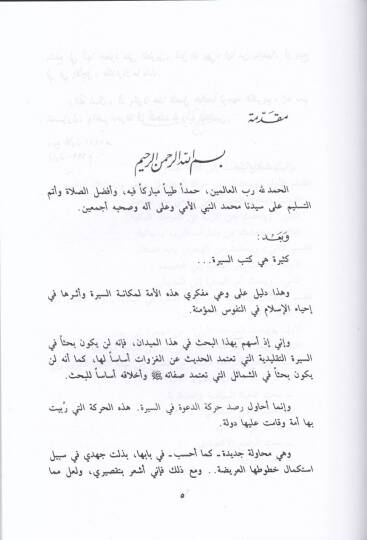 مقدّمة
بسم الله الرحمن الرحيم
الحمد لله رب العالمين، حمداً طيباً مباركاً فيه، وأفضل الصلاة وأتم
التسليم على سيدنا محمد النبي الأمي وعلى آله وصحبه أجمعين.
وَبَعْد:
كثيرة هي كتب السيرة...
وهذا دليل على وعي مفكري هذه الأمة لمكانة السيرة وأثرها في
إحياء الإسلام في النفوس المؤمنة.
وإني إذ أسهم بهذا البحث في هذا الميدان، فإنه لن يكون بحثاً في
السيرة التقليدية التي تعتمد الحديث عن الغزوات أساساً لها، كما أنه لن
يكون بحثاً في الشمائل التي تعتمد صفاته ﷺ وأخلاقه أساساً للبحث.
وإنما أحاول رصد حركة الدعوة في السيرة. هذه الحركة التي رُبيت
بها أمة وقامت عليها دولة.
وهي محاولة جديدة - كما أحسب - في بابها، بذلت جهدي في سبيل
استكمال خطوطها العريضة.. ومع ذلك فإني أشعر بتقصيري، ولعل مما
٥